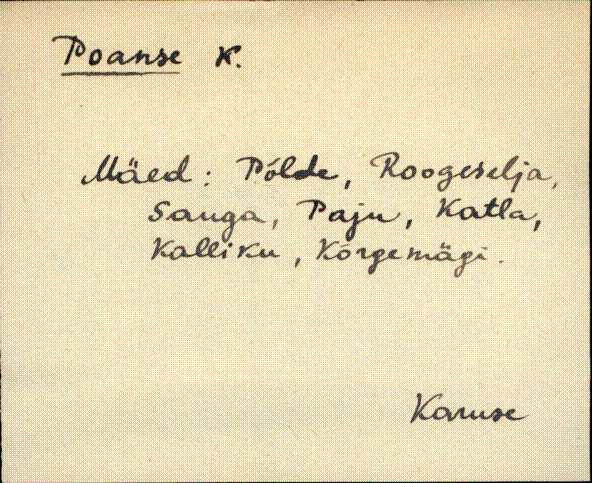 Poanse K.
Mäed: Põlde, Roogeselja,
Sauga, Paju, Katla,
Kalliku, Kõrgemägi.
Karuse